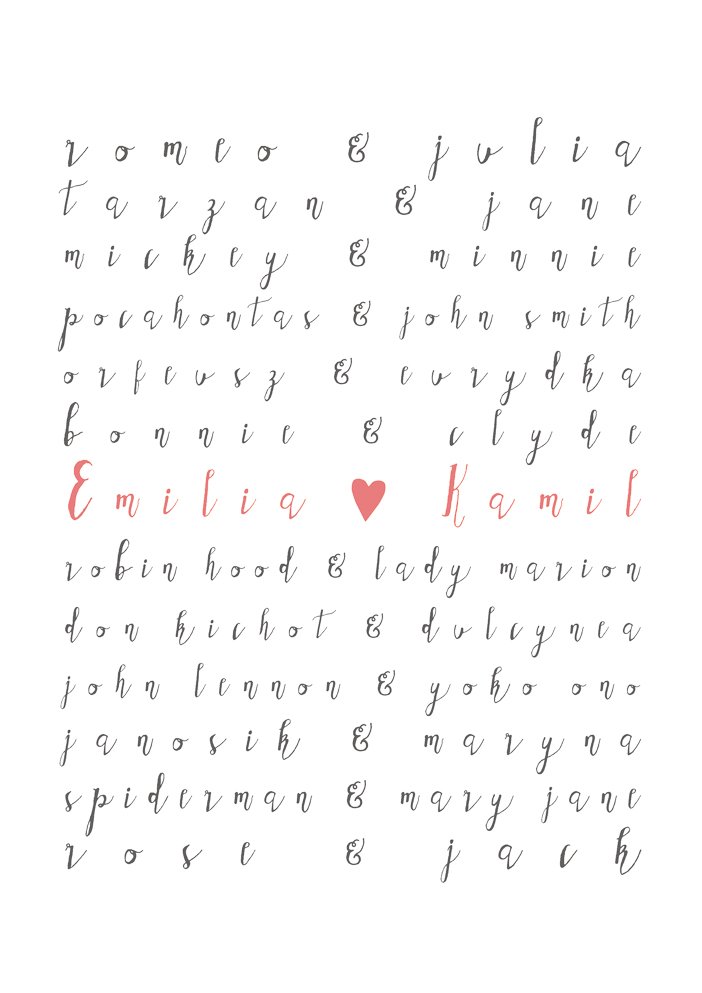 romeo & julia
tarzan & jane
mickey & minnie
pocahontas & john smith
orfeusz & eurydka
bonnie & clyde
Emilia ♥ Kamil
robin hood & lady marion
don kichot & dulcynea
john lennon & yoko ono
janosik & maryna
spiderman & mary jane
rose & jack